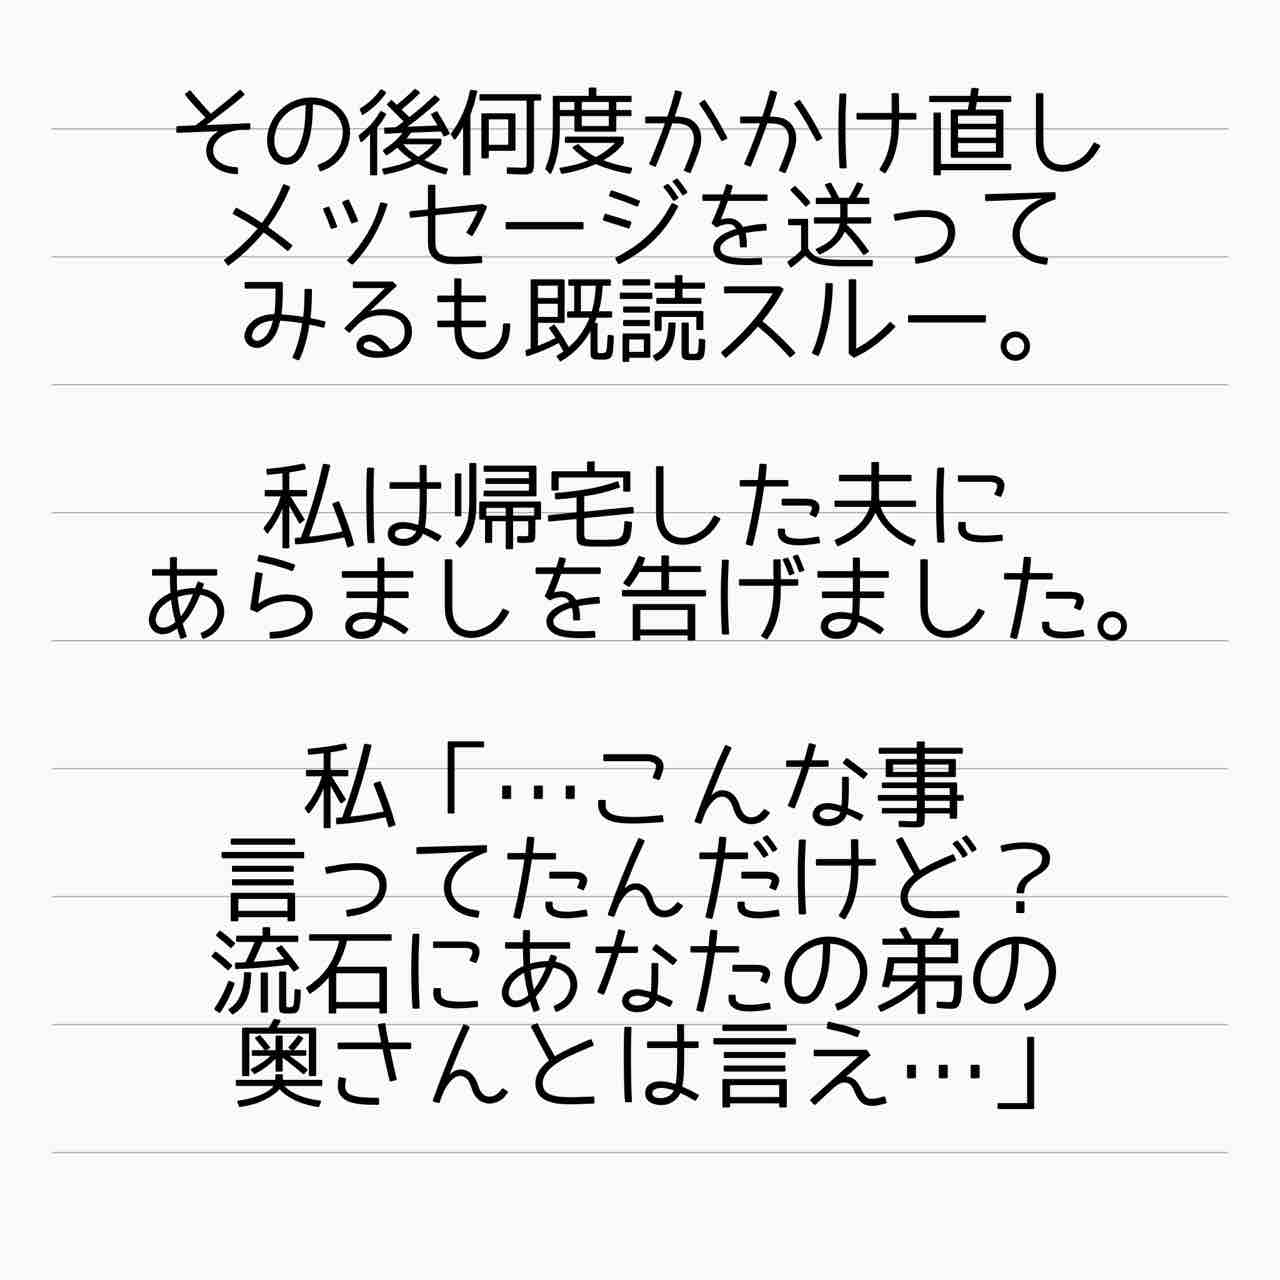 その後何度かかけ直し
メッセージを送って
みるも既読スルー。
私は帰宅した夫に
あらましを告げました。
私「…こんな事
言ってたんだけど？
流石にあなたの弟の
奥さんとは言え…」